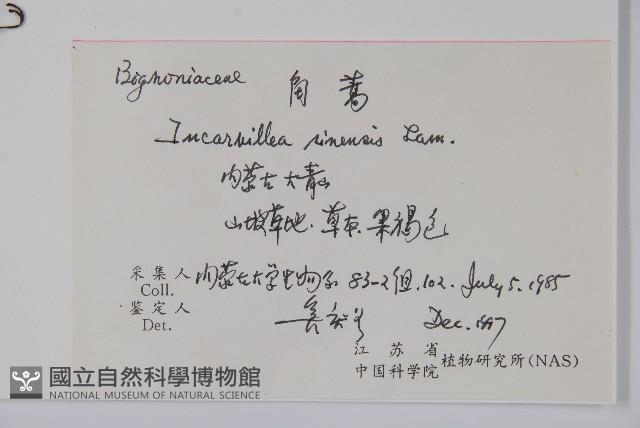 Bignoniaceae 角蒿
Incarvillea sinensis Lam.
内蒙古大青山
山坡草地. 草本. 果褐色
采集人 内蒙古大学生物系 83-2组. 102. July 5. 1985
Coll.
鉴定人 Dec. 1997
Det.
江苏省
中国科学院 植物研究所(NAS)
國立自然科學博物館
NATIONAL MUSEUM OF NATURAL SCIENCE